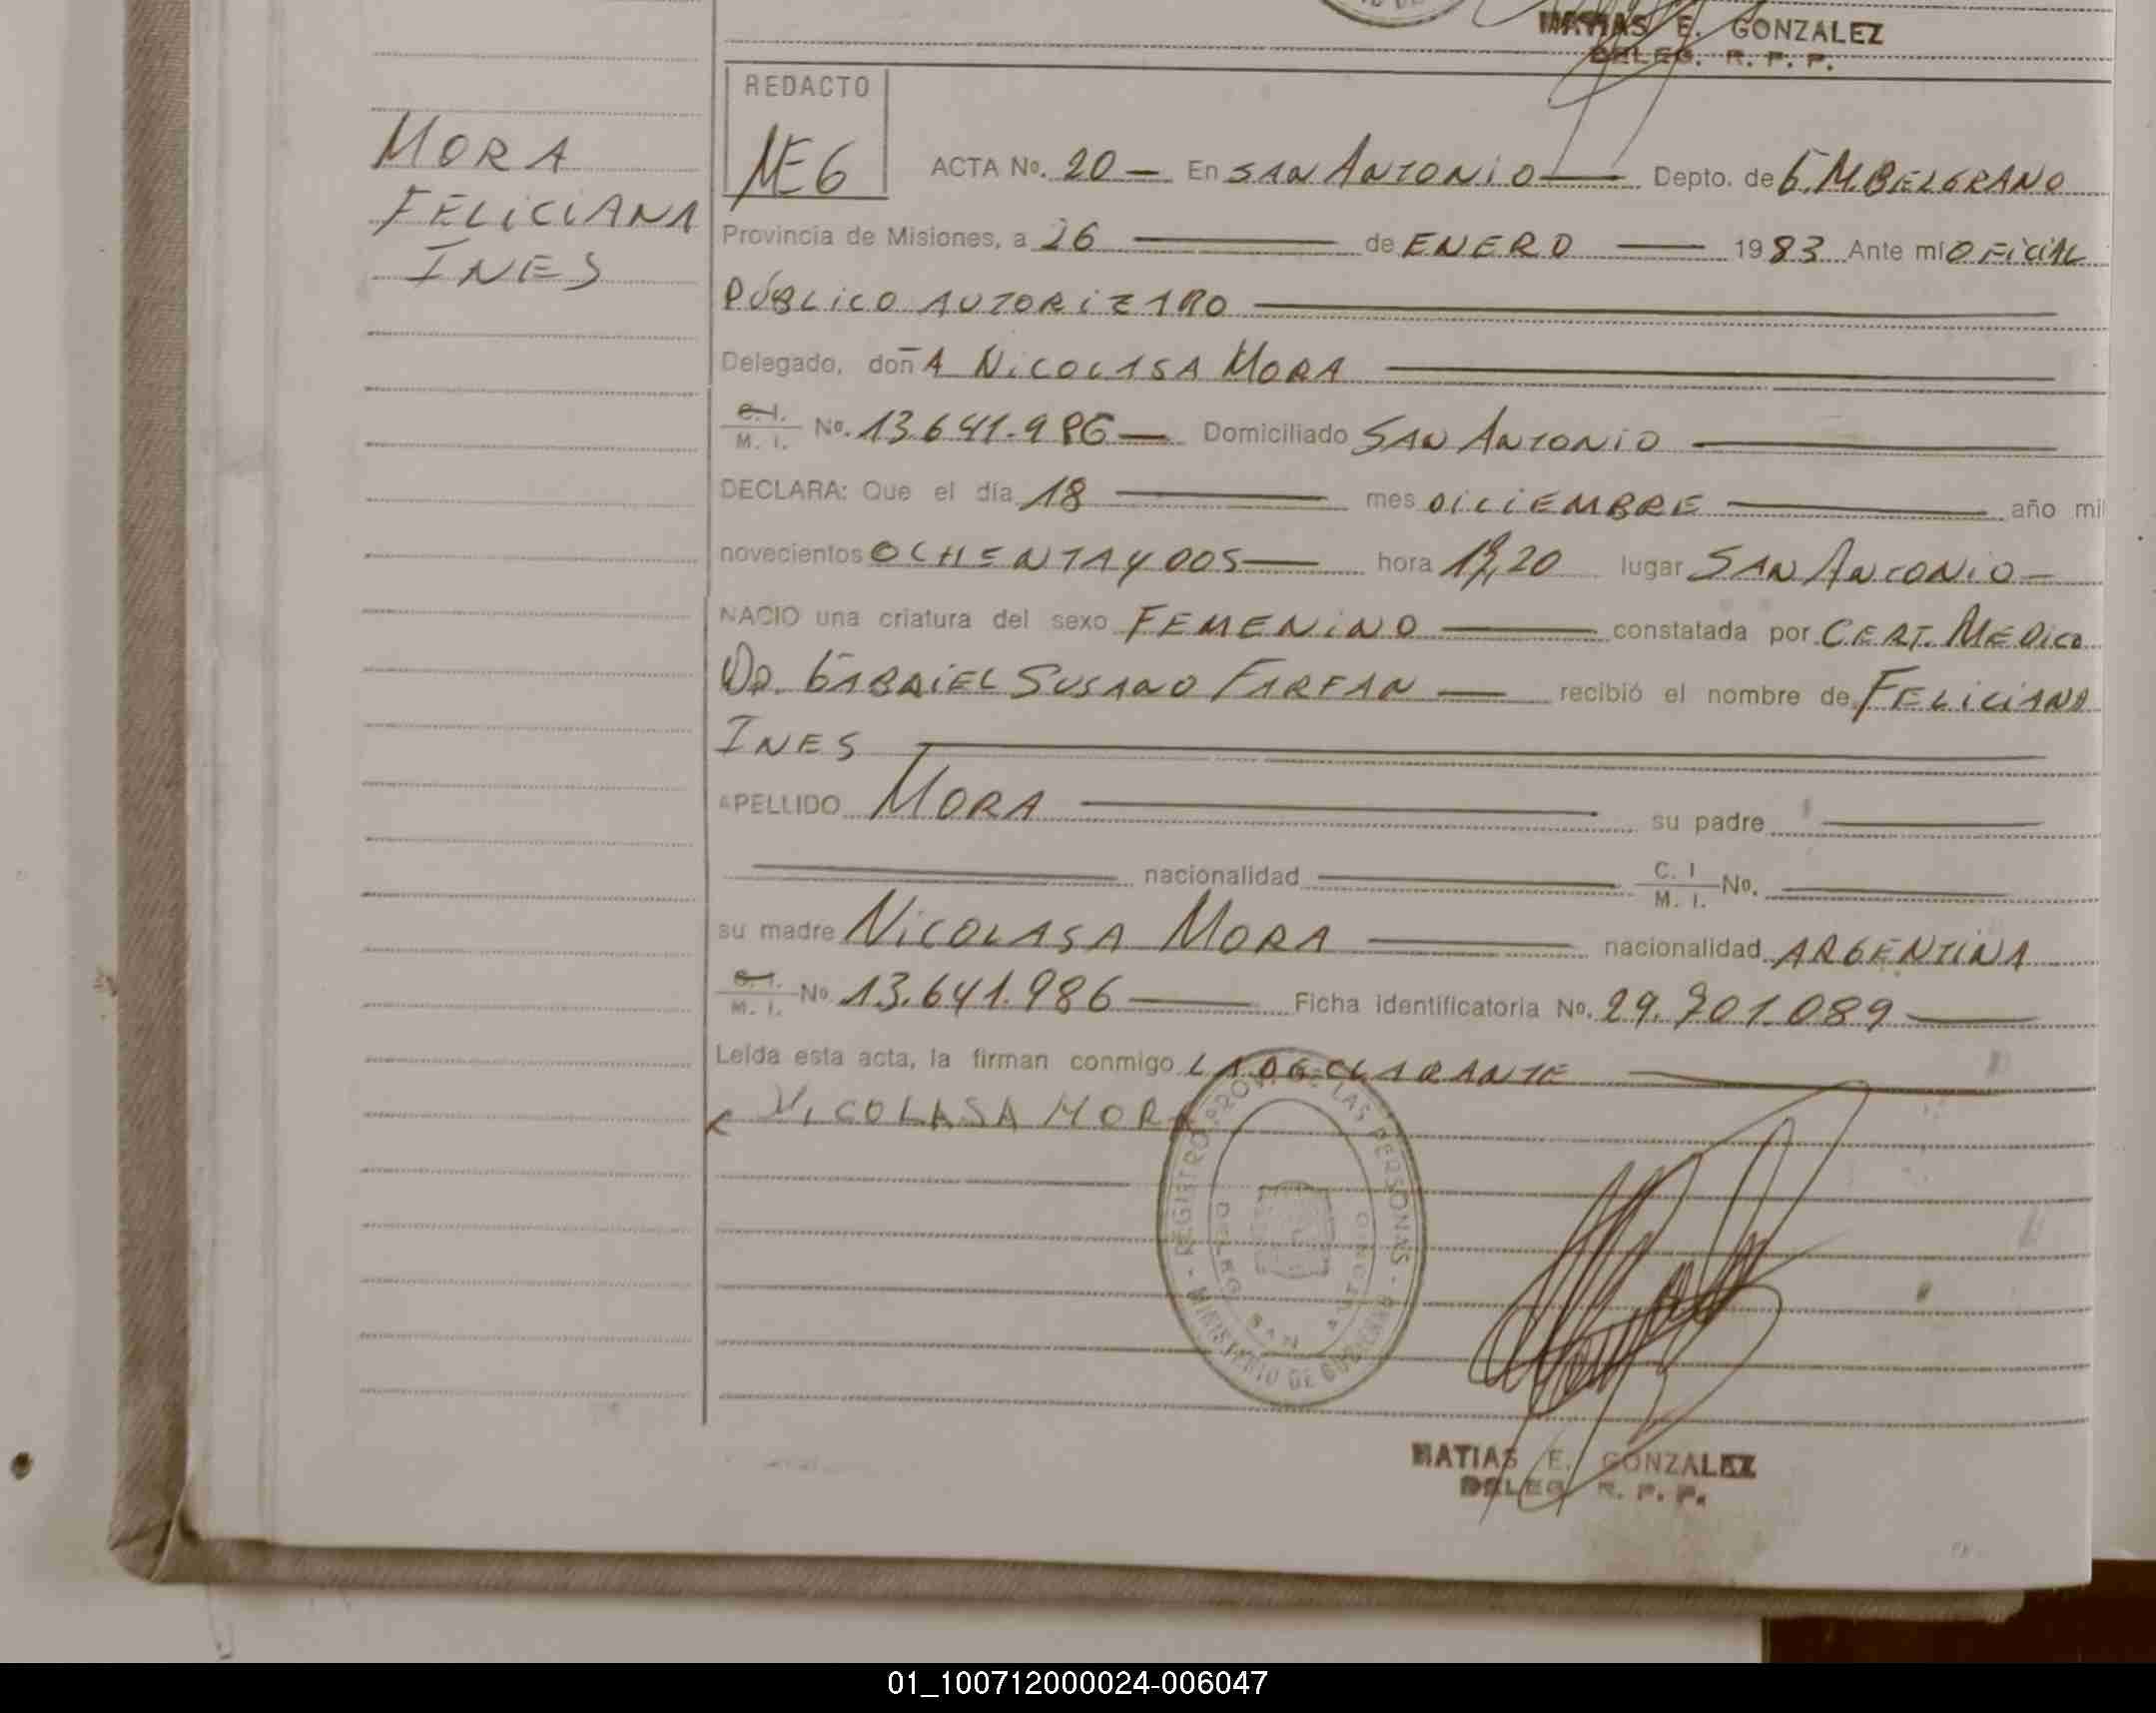 MATIAS E. GONZALEZ
DELEG. R. P. P.
MORA
FELICIANA
INES
REDACTO
MEG
ACTA No. 20 — En SAN ANTONIO — Depto. de G. M. BELGRANO
Provincia de Misiones, a 26 — de ENERO — 1983 Ante mí OFICIAL
PÚBLICO AUTORIZADO
Delegado, doñA NICOLASA MORA
C. I. / M. I. No. 13.641.986 — Domiciliado SAN ANTONIO
DECLARA: Que el día 18 — mes DICIEMBRE — año mil
novecientos OCHENTA Y DOS — hora lugar SAN ANTONIO —
NACIO una criatura del sexo FEMENINO — constatada por CERT. MEDICO
DR. GABRIEL SUSANO FARFAN — recibió el nombre de FELICIANA
INES
APELLIDO MORA — su padre —
— nacionalidad — C. I / M. I. No. —
su madre NICOLASA MORA — nacionalidad ARGENTINA
C. I. / M. I. No 13.641.986 — Ficha identificatoria No. 29.701.089 —
Leída esta acta, la firman conmigo LA DECLARANTE —
NICOLASA MORA
REGISTRO PROV. DE LAS PERSONAS - MINISTERIO DE GOBIERNO -
DELEG. SAN ANTONIO
MATIAS E. GONZALEZ
DELEG. R. P. P.
01_100712000024-006047